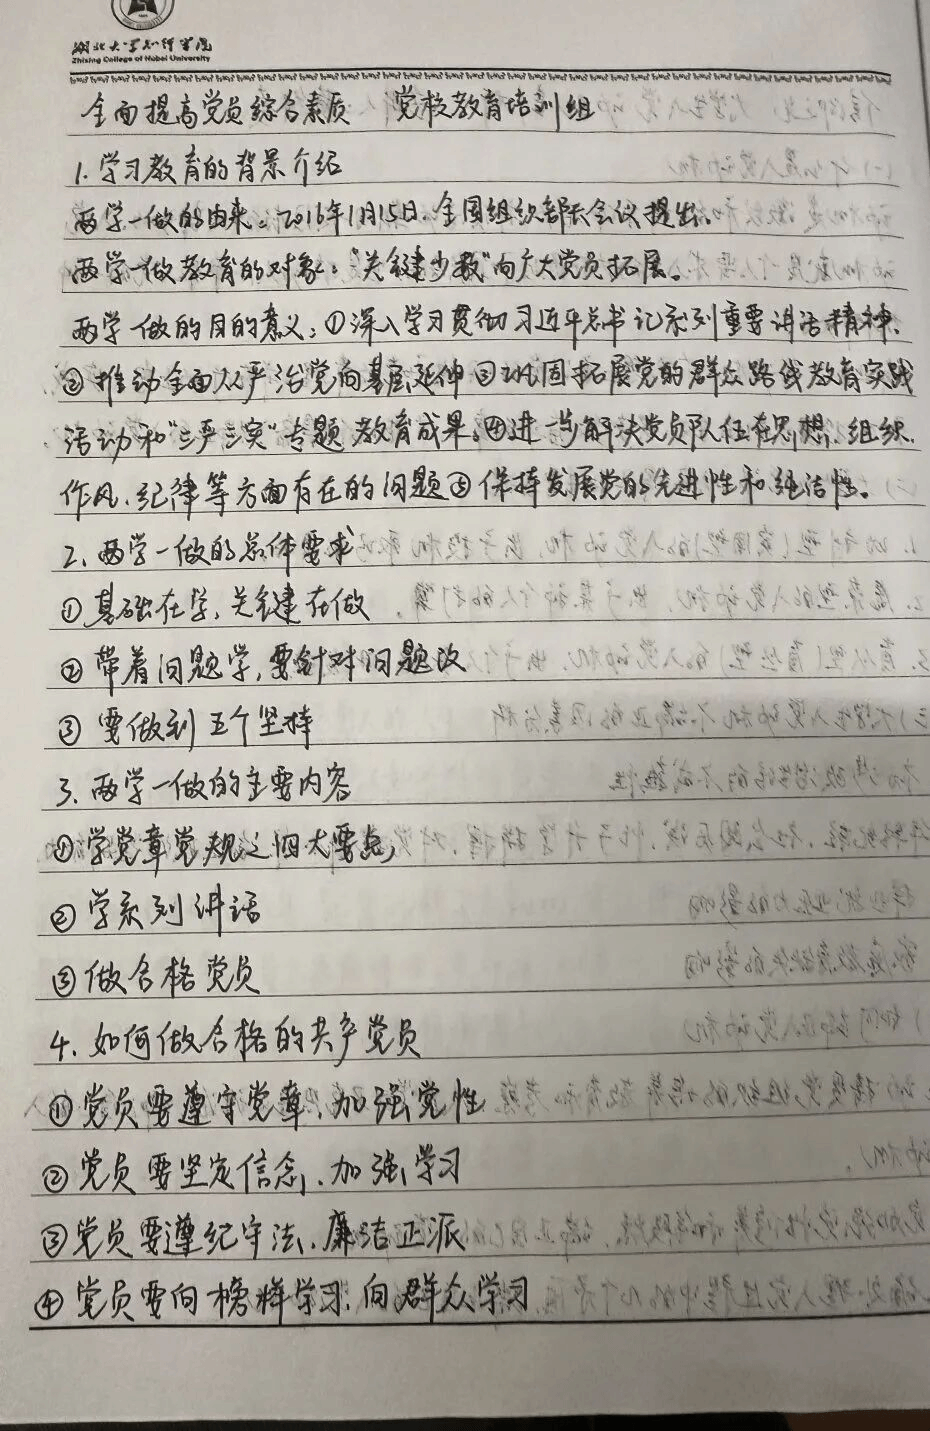 湖北大学知行学院
Zhixing College of Hubei University
全面提高党员综合素质 党校教育培训组
1. 学习教育的背景介绍
两学一做的由来：2016年1月15日、全国组织部长会议提出。
两学一做教育的对象：“关键少数”向广大党员拓展。
两学一做的目的意义：①深入学习贯彻习近平总书记系列重要讲话精神、
②推动全面从严治党向基层延伸③巩固拓展党的群众路线教育实践
活动和“三严三实”专题教育成果、④进一步解决党员队伍在思想、组织、
作风、纪律等方面存在的问题⑤保持发展党的先进性和纯洁性。
2. 两学一做的总体要求
①基础在学，关键在做
②带着问题学，要针对问题改
③要做到五个坚持
3. 两学一做的主要内容
①学党章党规之四大要点
②学系列讲话
③做合格党员
4. 如何做合格的共产党员
①党员要遵守党章、加强党性
②党员要坚定信念、加强学习
③党员要遵纪守法、廉洁正派
④党员要向榜样学习、向群众学习